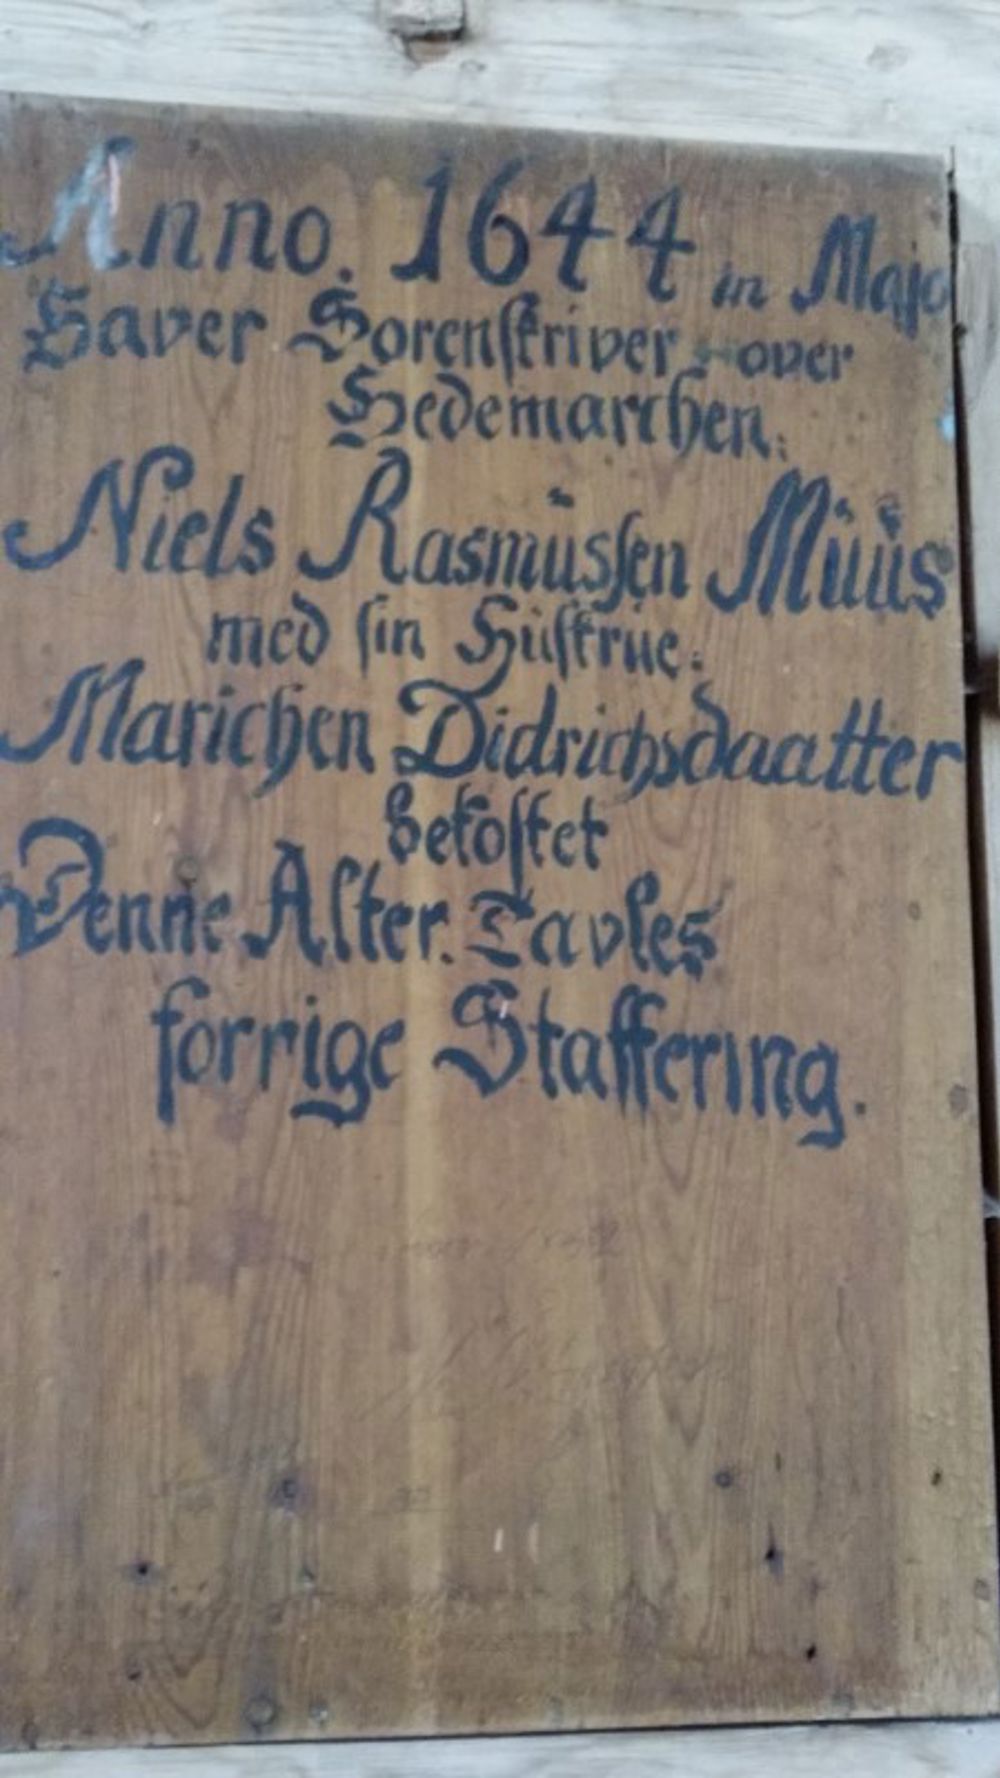 Anno. 1644 in Majo
Haver Sorenskriver over
Hedemarchen.
Niels Rasmüssen Müüs
med sin Hüstrue.
Marichen Didrichsdaatter
bekostet
Denne Alter. Tavles
forrige Staffering.